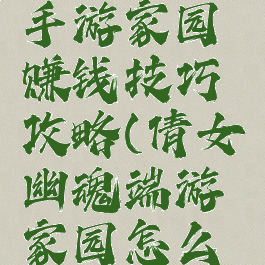 手游家园
赚钱技巧
攻略(倩女
幽魂端游
家园怎么